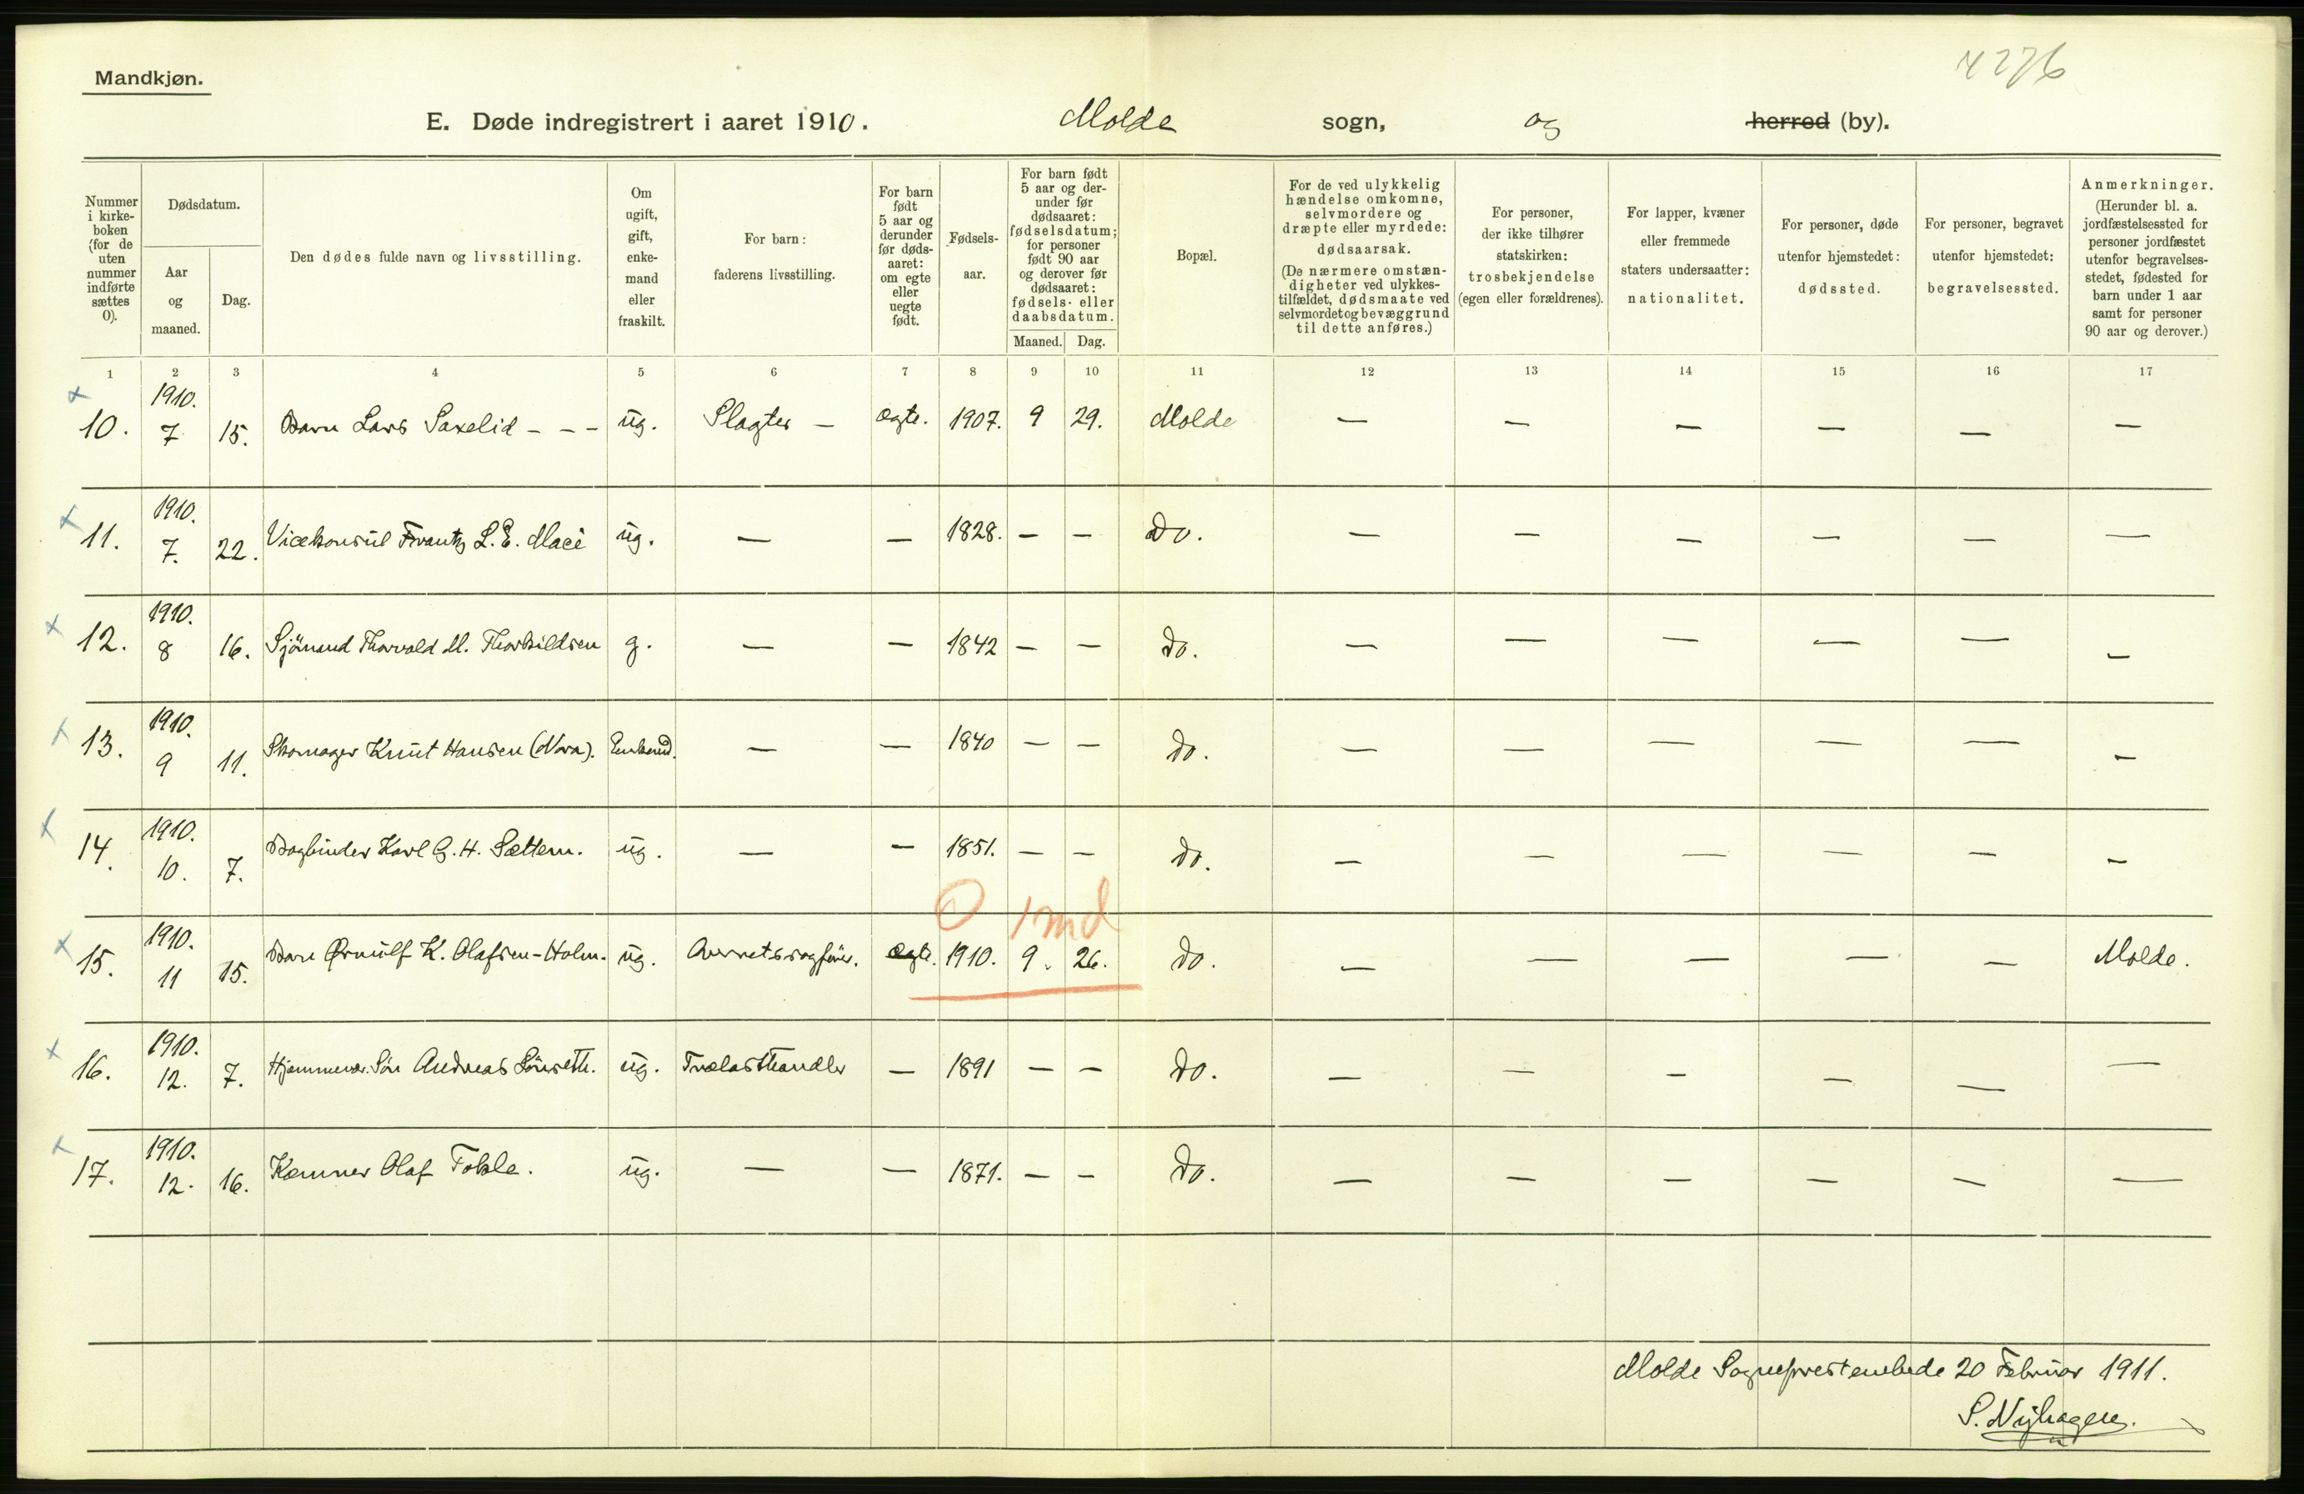 4276
Mandkjøn.
E. Døde indregistrert i aaret 1910. Molde sogn, og herred (by).
Nummer i kirke-boken (for de uten nummer indførte sættes 0).
Dødsdatum.
Aar og maaned.
Dag.
Den dødes fulde navn og livsstilling.
Om ugift, gift, enke-mand eller fraskilt.
For barn: faderens livsstilling.
For barn født 5 aar og derunder før døds-aaret: om egte eller uegte født.
Fødsels-aar.
For barn født 5 aar og der-under før dødsaaret: fødselsdatum; for personer født 90 aar og derover før dødsaaret: fødsels- eller daabsdatum.
Maaned.
Dag.
Bopæl.
For de ved ulykkelig hændelse omkomne, selvmordere og dræpte eller myrdede: dødsaarsak. (De nærmere omstæn-digheter ved ulykkes-tilfældet, dødsmaate ved selvmordet og bevæggrund til dette anføres.)
For personer, der ikke tilhører statskirken: trosbekjendelse (egen eller forældrenes).
For lapper, kvæner eller fremmede staters undersaatter: nationalitet.
For personer, døde utenfor hjemstedet: dødssted.
For personer, begravet utenfor hjemstedet: begravelsessted.
Anmerkninger. (Herunder bl. a. jordfæstelsessted for personer jordfæstet utenfor begravelses-stedet, fødested for barn under 1 aar samt for personer 90 aar og derover.)
1 2 3 4 5 6 7 8 9 10 11 12 13 14 15 16 17
10. 1910. 7 15. Barn Lars Saxelid - - - ug. Slagter — ægte. 1907. 9 29. Molde — — — — — —
11. 1910. 7. 22. Vicekonsul Frantz L. E. Macé ug. — — 1828. — — Do. — — — — — —
12. 1910. 8 16. Sjömand Thorvald M. Thorkildsen g. — — 1842 — — Do. — — — — — —
13. 1910. 9 11. Skomager Knut Hansen (Nora). Enkemd. — — 1840 — — Do. — — — — — —
14. 1910. 10. 7. Bogbinder Karl G. H. Sættem. ug. — — 1851. — — Do. — — — — — —
0 1 md
15. 1910. 11 15. Barn Ørnulf K. Olafsen-Holm. ug. Overretssagfører. ægte. 1910. 9. 26. Do. — — — — — Molde.
16. 1910. 12. 7. Hjemmevær. Sön Andreas Lönseth. ug. Trælasthandler — 1891 — — Do. — — — — — —
17. 1910. 12. 16. Kæmner Olaf Tokle. ug. — — 1871. — — Do. — — — — — —
Molde Sogneprestembede 20 Februar 1911.
S. Nyhagen.